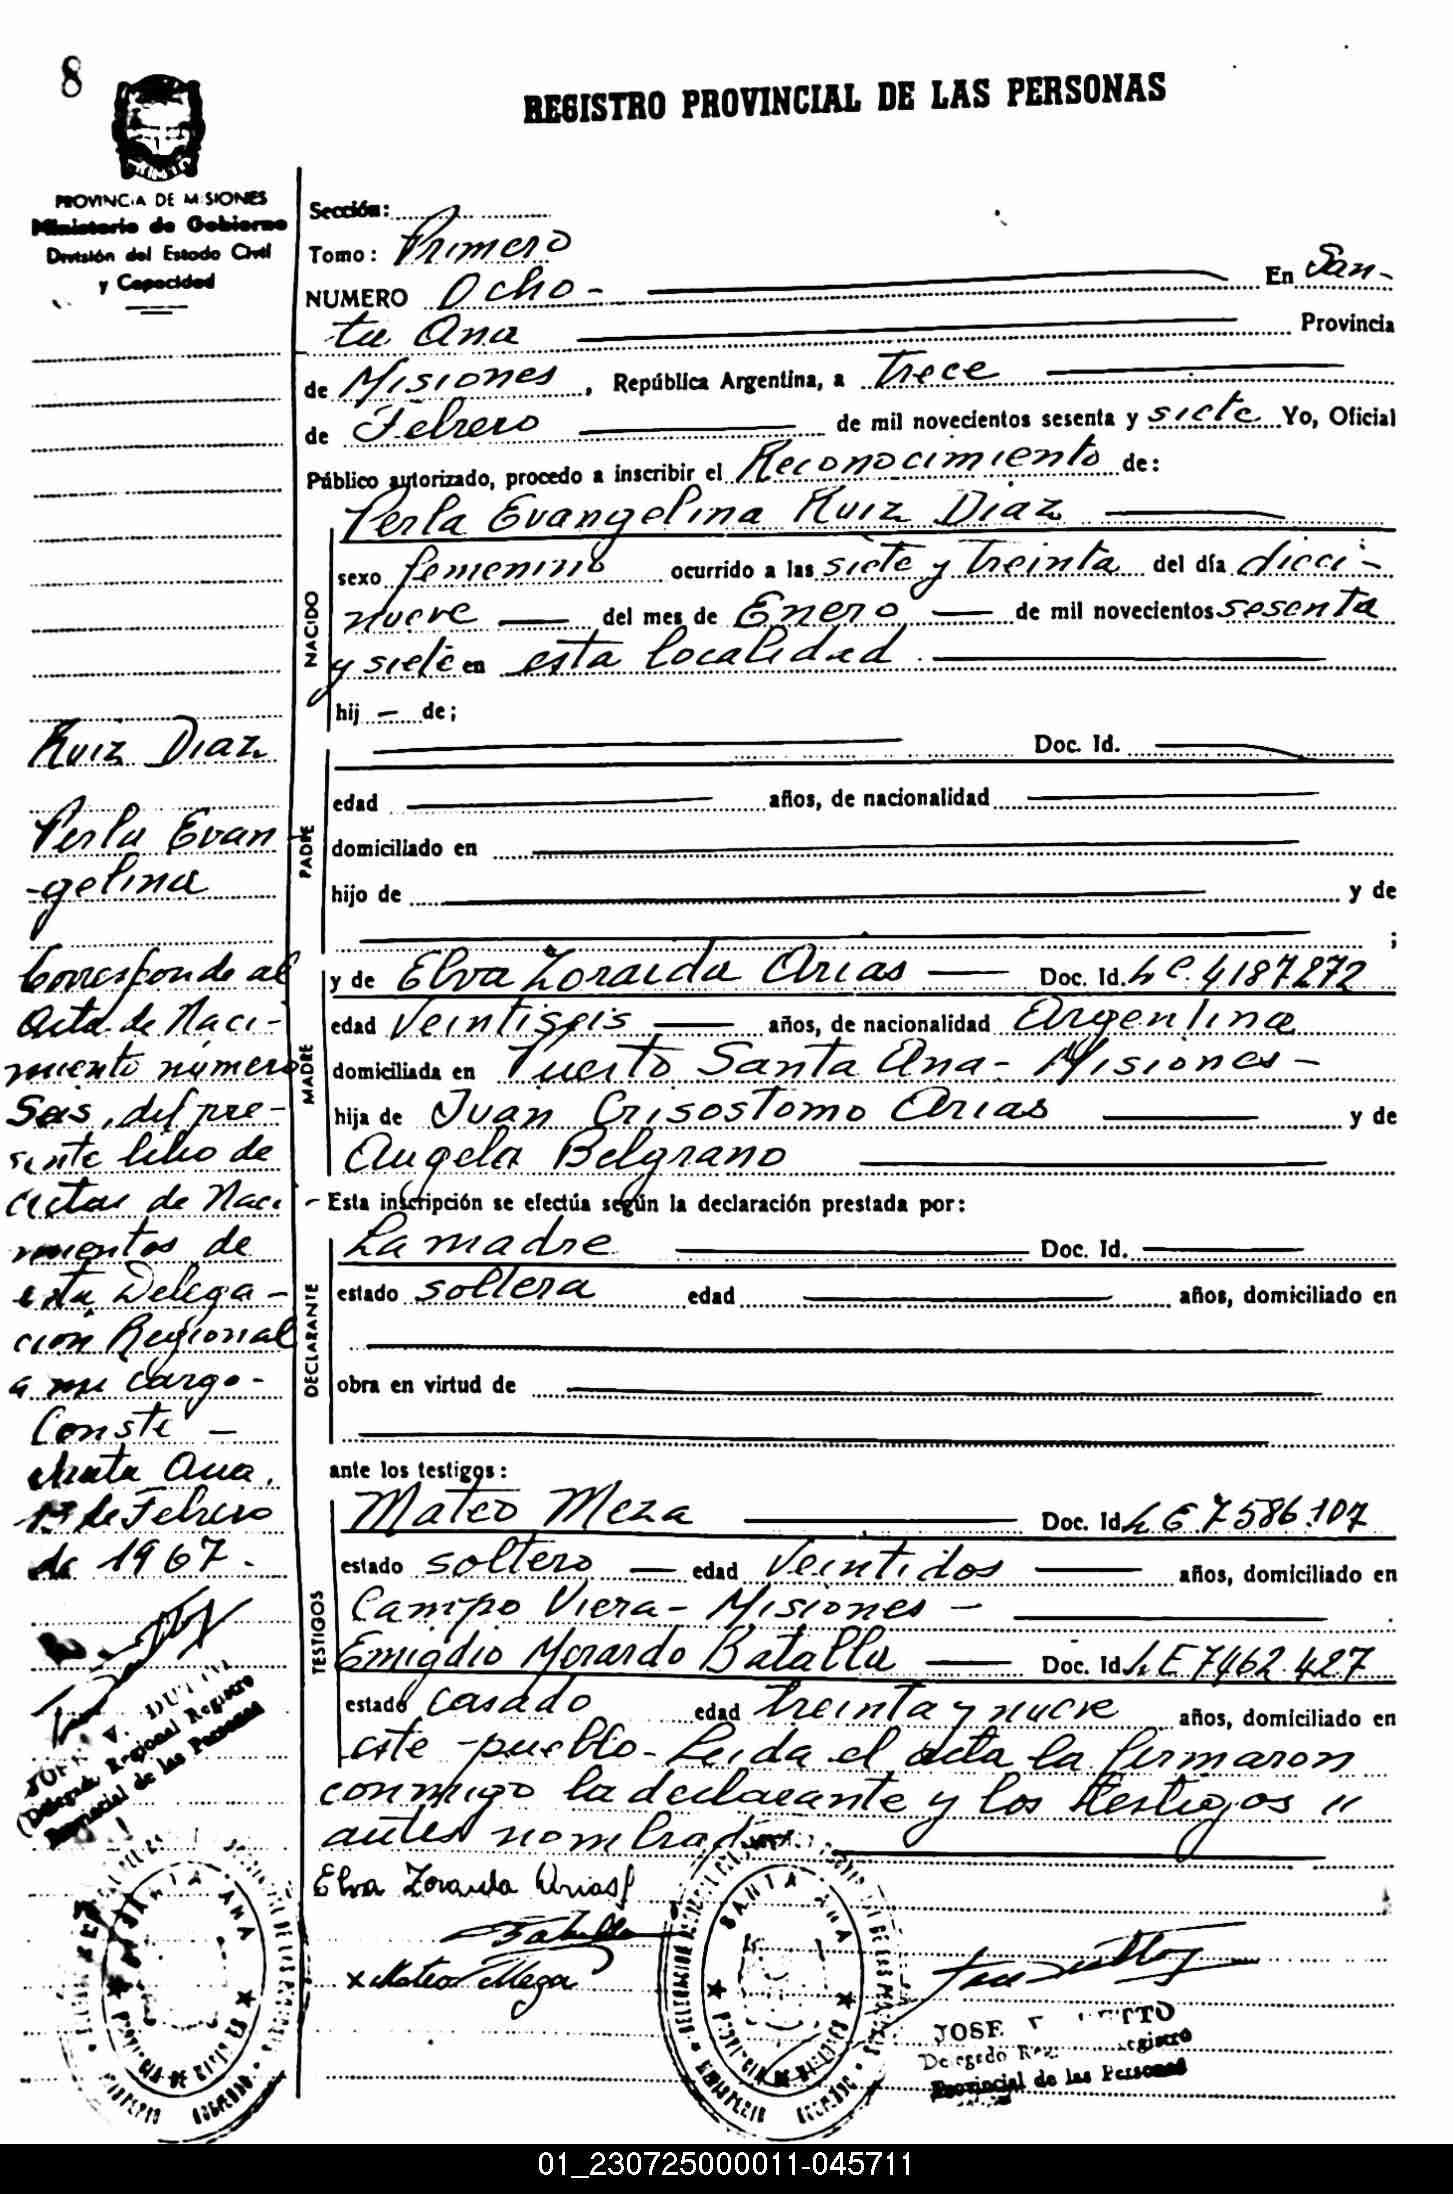 8
REGISTRO PROVINCIAL DE LAS PERSONAS
PROVINCIA DE MISIONES
Ministerio de Gobierno
División del Estado Civil
y Capacidad
Sección:
Tomo: Primero
NUMERO Ocho - En San-
ta Ana Provincia
de Misiones, República Argentina, a Trece
de Febrero de mil novecientos sesenta y siete Yo, Oficial
Público autorizado, procedo a inscribir el Reconocimiento de:
Perla Evangelina Ruiz Diaz
NACIDO
sexo femenino ocurrido a las siete y treinta del día dieci-
nueve del mes de Enero de mil novecientos sesenta
y siete en esta localidad.
hij - de;
PADRE
Doc. Id.
edad años, de nacionalidad
domiciliado en
hijo de y de
;
MADRE
y de Elva Zoraida Arias Doc. Id. L C. 4187272
edad Veintiseis años, de nacionalidad Argentina
domiciliada en Puerto Santa Ana - Misiones -
hija de Juan Crisostomo Arias y de
Angela Belgrano
Esta inscripción se efectúa según la declaración prestada por:
DECLARANTE
La madre Doc. Id.
estado soltera edad años, domiciliado en
obra en virtud de
ante los testigos:
TESTIGOS
Mateo Meza Doc. Id. L E 7586.107
estado soltero edad Veintidos años, domiciliado en
Campo Viera - Misiones -
Emigdio Morardo Batalla Doc. Id. L E 7462.427
estado casado edad treinta y nueve años, domiciliado en
este pueblo - Leida el acta la firmaron
conmigo la declarante y los testigos
antes nombrados
Elva Zoraida Arias
Batalla
x Mateo Meza
JOSE V. DUTTO
Delegado Regional Registro
Provincial de las Personas
SANTA ANA
PROVINCIA DE MISIONES
Ruiz Diaz
Perla Evan
-gelina
Corresponde al
Acta de Naci-
miento número
Seis, del pre-
sente libro de
actas de Naci
mientos de
esta Delega-
cion Regional
a mi cargo -
Conste -
Santa Ana,
13 de Febrero
de 1967.
JOSE V. DUTTO
Delegado Regional Registro
Provincial de las Personas
SANTA ANA
PROVINCIA DE MISIONES
01_230725000011-045711